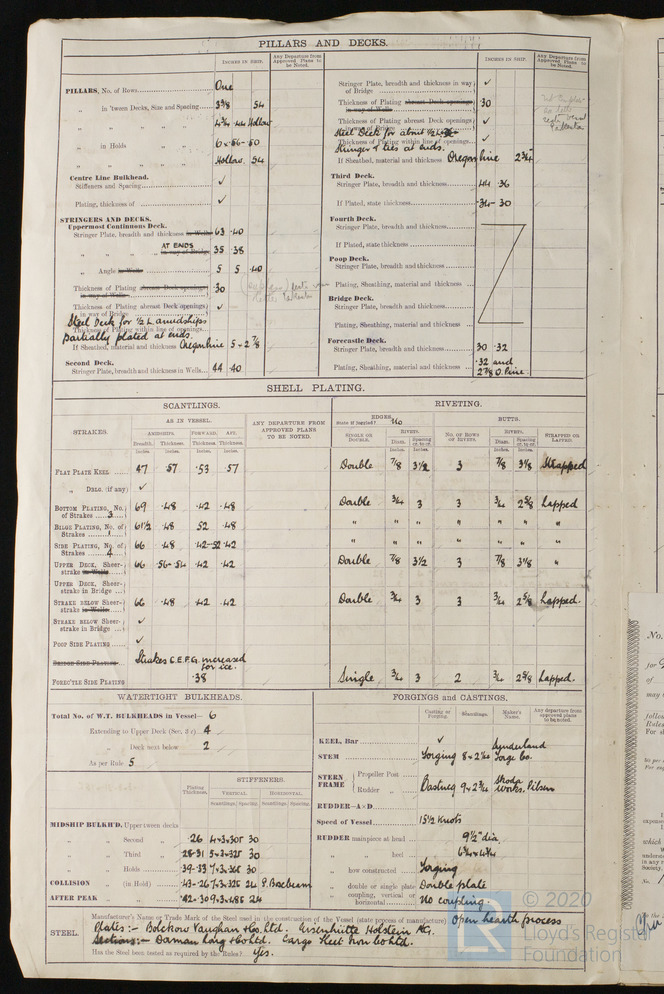 PILLARS AND DECKS.
INCHES IN SHIP.
Any Departure from Approved Plans to be Noted.
PILLARS, No. of Rows One
„ in 'tween Decks, Size and Spacing 3⅜ 54
„ „ „ „ Hollow
„ in Holds
„ „ „ „ Hollow. 54
Centre Line Bulkhead.
Stiffeners and Spacing ✓
Plating, thickness of ✓
STRINGERS AND DECKS.
Uppermost Continuous Deck.
Stringer Plate, breadth and thickness in Wells 63 .40
AT ENDS
„ „ „ „ in way of Bridge 35 .38
„ Angle in Wells 5 5 .40
Thickness of Plating abreast Deck openings in way of Wells .30
Thickness of Plating abreast Deck openings in way of Bridge ✓
Steel Deck for ½ L amidships
Thickness of Plating within line of openings
Partially plated at ends.
If Sheathed, material and thickness Oregon Pine 5 × 2⅞
Second Deck.
Stringer Plate, breadth and thickness in Wells 44 .40
INCHES IN SHIP.
Any Departure from Approved Plans to be Noted.
Stringer Plate, breadth and thickness in way of Bridge ✓
Thickness of Plating abreast Deck openings .30
Thickness of Plating abreast Deck openings in way of Bridge ✓
Steel Deck for about ½ L
Thickness of Plating within line of openings ✓
Stringer & ties at ends.
If Sheathed, material and thickness Oregon Pine 2¾"
Third Deck.
Stringer Plate, breadth and thickness 44 .36
If Plated, state thickness .34-.30
Fourth Deck.
Stringer Plate, breadth and thickness
If Plated, state thickness
Poop Deck.
Stringer Plate, breadth and thickness
Plating, Sheathing, material and thickness
Bridge Deck.
Stringer Plate, breadth and thickness
Plating, Sheathing, material and thickness
Forecastle Deck.
Stringer Plate, breadth and thickness 30 .32
Plating, Sheathing, material and thickness .32 and
2⅞ O. Pine.
SHELL PLATING.
SCANTLINGS.
RIVETING.
STRAKES
AS IN VESSEL.
ANY DEPARTURE FROM APPROVED PLANS TO BE NOTED.
EDGES.
State if joggled? No
BUTTS.
AMIDSHIPS. FORWARD. AFT.
Breadth. Thickness. Thickness Thickness.
Inches. Inches. Inches. Inches.
SINGLE OR DOUBLE.
RIVETS.
Diam. Spacing cr. to cr.
NO. OF ROWS OF RIVETS.
RIVETS.
Diam. Spacing cr. to cr.
STRAPPED OR LAPPED.
FLAT PLATE KEEL 47 .57 .53 .57 Double ⅞ 3½ 3 ⅞ 3⅛ Strapped
„ DBLG. (if any) ✓
BOTTOM PLATING, No. of Strakes 3 69 .48 .42 .48 Double ¾ 3 3 ¾ 2⅝ Lapped
BILGE PLATING, No. of Strakes 1 61½ .48 .52 .48 „ „ „ „ „ „ „
SIDE PLATING, No. of Strakes 4 66 .48 .42-.52 .42 „ „ „ „ „ „ „
UPPER DECK, Sheer-strake in Wells 66 .56-.54 .42 .42 Double ⅞ 3½ 3 ⅞ 3⅛ „
UPPER DECK, Sheer-strake in Bridge
STRAKE BELOW Sheer-strake in Wells 66 .48 .42 .42 Double ¾ 3 3 ¾ 2⅝ Lapped.
STRAKE BELOW Sheer-strake in Bridge ✓
POOP SIDE PLATING ✓
BRIDGE SIDE PLATING Strakes C.E.F.G. increased
for ice.
FOREC'TLE SIDE PLATING .38 Single ¾ 3 2 ¾ 2⅝ Lapped.
WATERTIGHT BULKHEADS.
Total No. of W.T. BULKHEADS in Vessel— 6
Extending to Upper Deck (Sec. 3 c) 4
„ Deck next below 2
As per Rule 5
STIFFENERS.
Plating Thickness.
VERTICAL. HORIZONTAL.
Scantlings. Spacing. Scantlings. Spacing.
MIDSHIP BULKH'D, Upper tween decks
„ „ Second „ .26 30
„ „ Third „ 30
„ „ Holds 30
COLLISION „ (in Hold) 24
AFTER PEAK „ „ 24
FORGINGS and CASTINGS.
Casting or Forging. Scantlings. Maker's Name. Any departure from approved plans to be noted.
KEEL, Bar ✓
STEM Forging Sunderland Forge Co.
STERN FRAME { Propeller Post
Rudder „ Casting 9 × 2¾ Skoda Works. Pilsen
RUDDER—A × D
Speed of Vessel 15½ Knots
RUDDER mainpiece at head 9½" dia
„ „ heel
„ how constructed Forging
„ double or single plate Double plate
„ coupling, vertical or horizontal No coupling.
STEEL.
Manufacturer's Name or Trade Mark of the Steel used in the construction of the Vessel (state process of manufacture) Open hearth process
Plates:— Bolckow Vaughan & Co. Ltd. Eisenhütte Holstein AG.
Sections:— Dorman Long & Co Ltd. Cargo Fleet Iron Co Ltd.
Has the Steel been tested as required by the Rules? Yes.
© 2020
Lloyd's Register
Foundation
No.